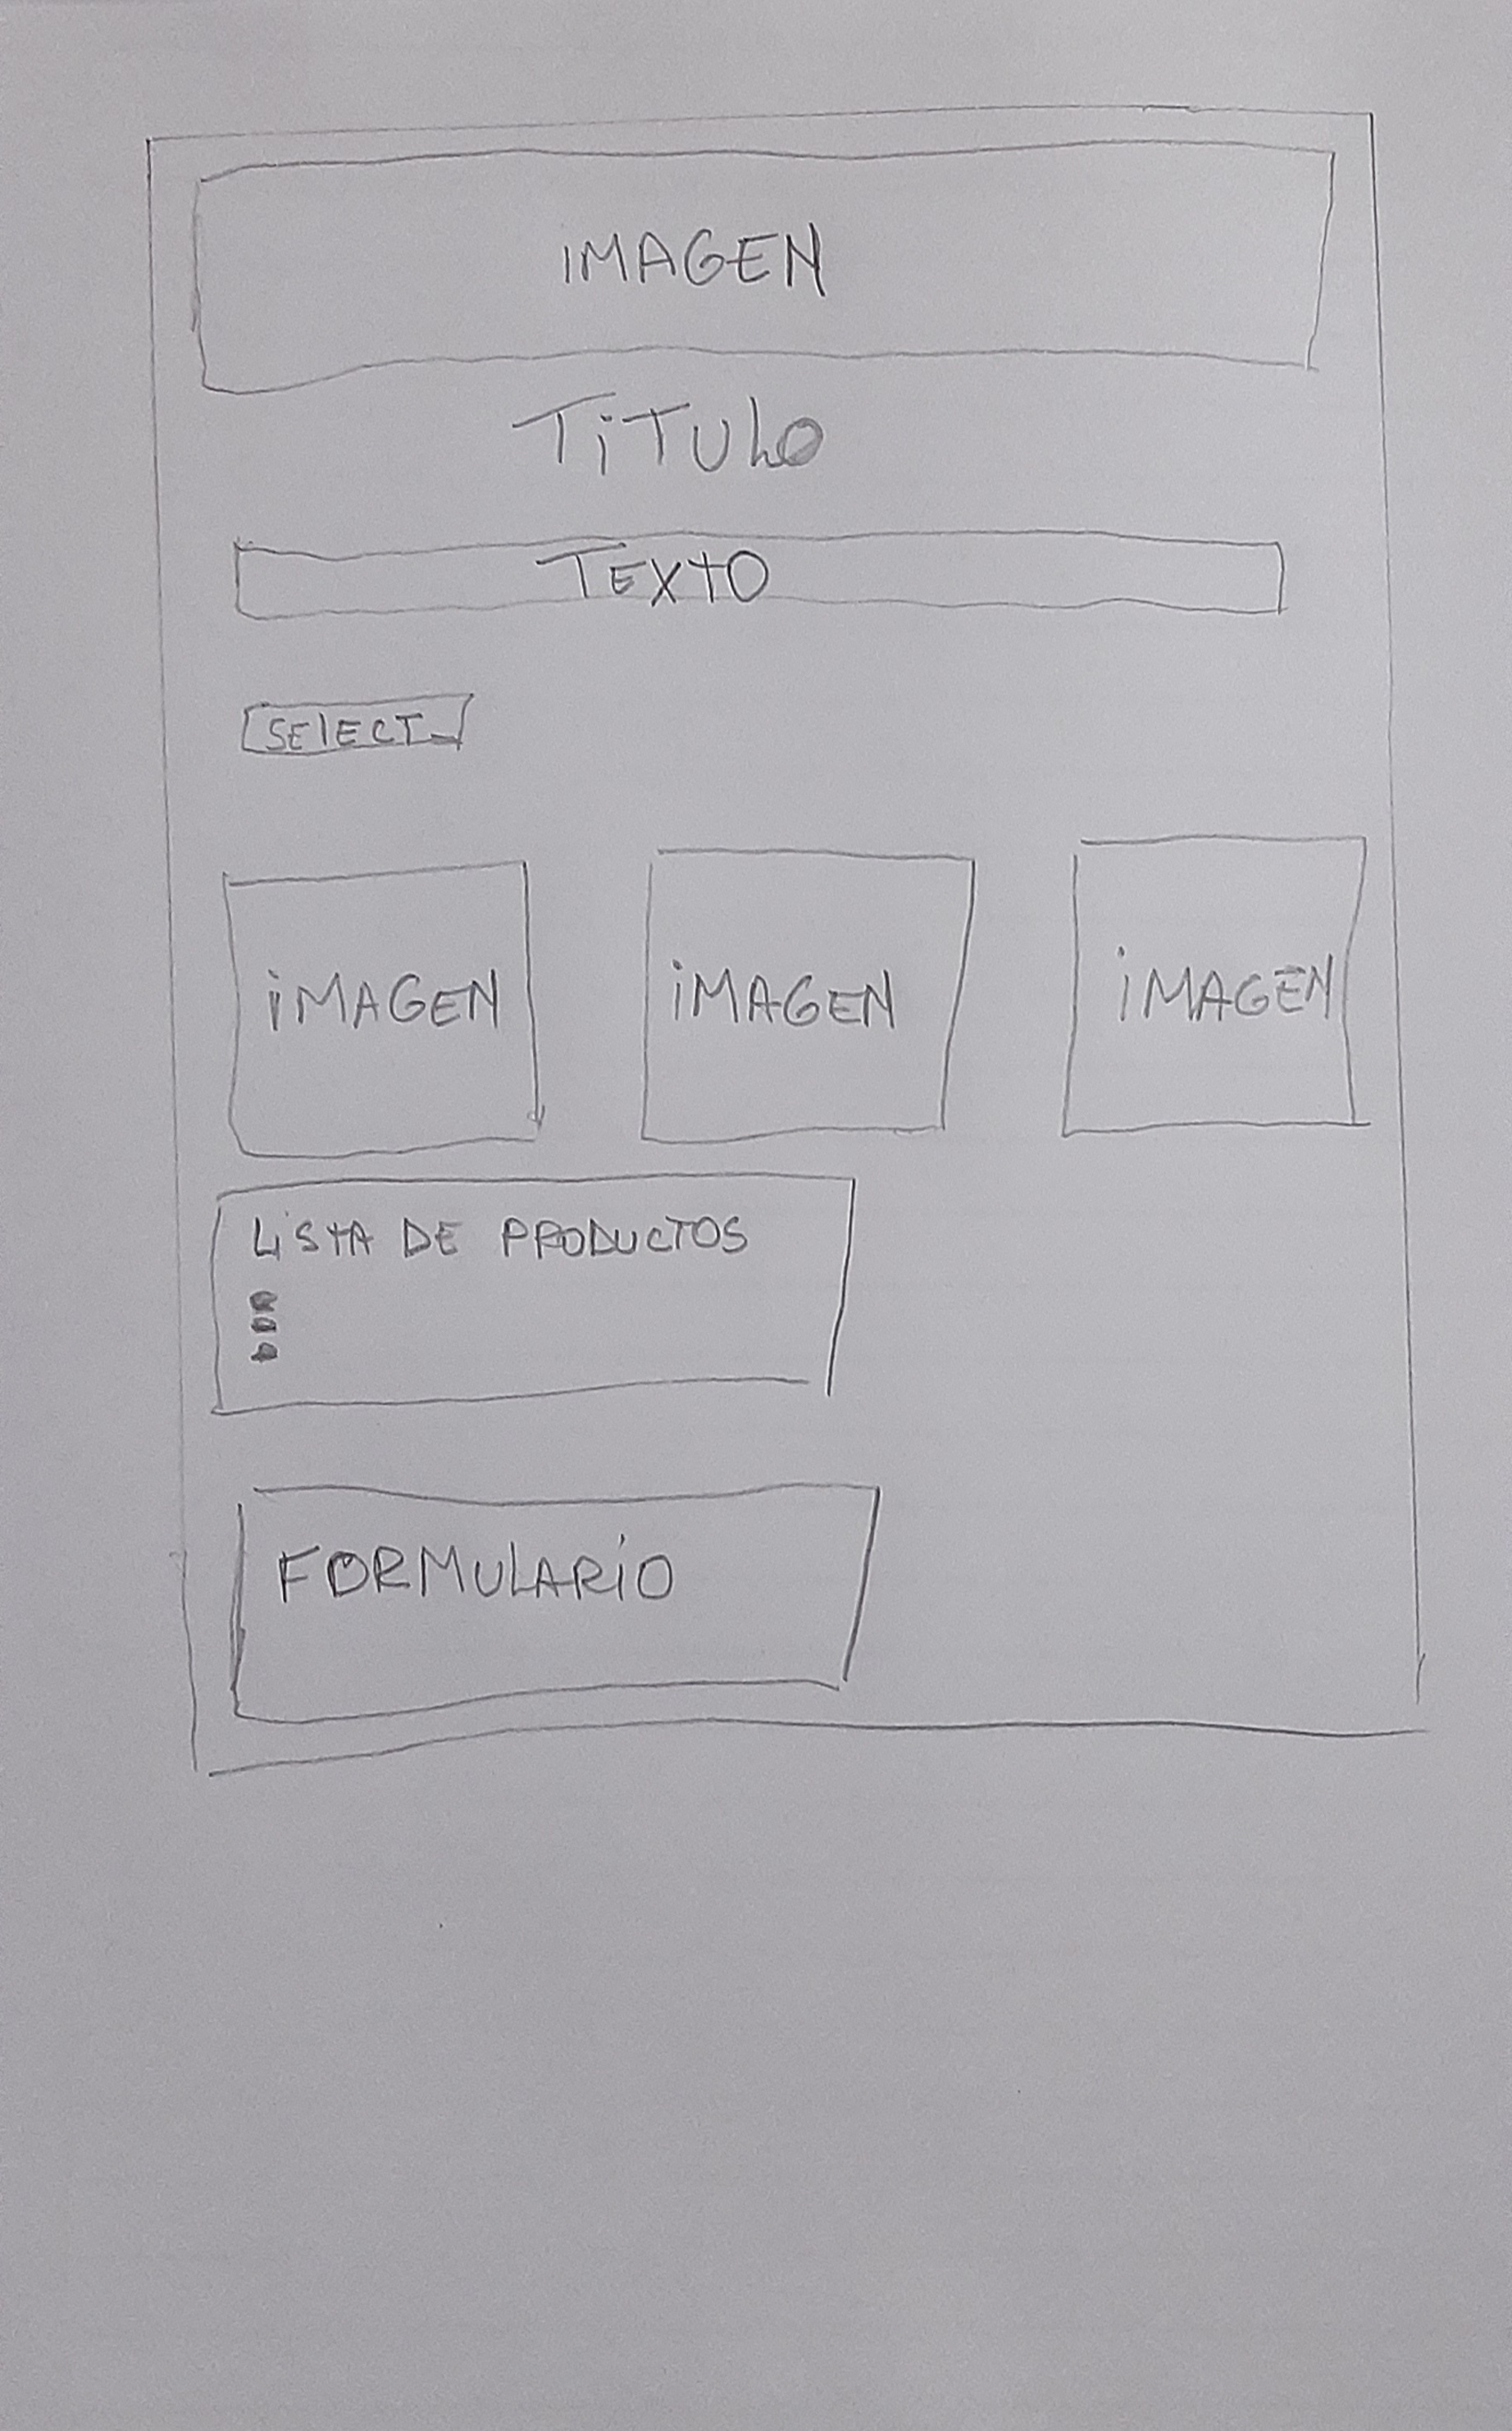 IMAGEN
TiTULO
TEXTO
SELECT
iMAGEN iMAGEN iMAGEN
LiSTA DE PRODUCTOS
FORMULARiO